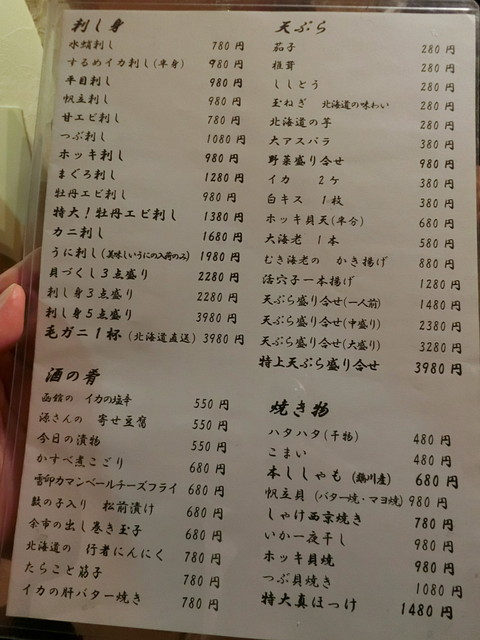 刺し身
水蛸刺し 780円
するめイカ刺し(半身) 980円
平目刺し 980円
帆立刺し 980円
甘エビ刺し 780円
つぶ刺し 1080円
ホッキ刺し 980円
まぐろ刺し 1280円
牡丹エビ刺し 980円
特大!牡丹エビ刺し 1380円
カニ刺し 1680円
うに刺し(美味しいうにの入荷のみ) 1980円
貝づくし3点盛り 2280円
刺し身3点盛り 2280円
刺し身5点盛り 3980円
毛ガニ1杯(北海道直送) 3980円
酒の肴
函館の イカの塩辛 550円
源さんの 寄せ豆腐 550円
今日の漬物 550円
かすべ煮こごり 680円
雪印カマンベールチーズフライ 680円
数の子入り 松前漬け 680円
余市の出し巻き玉子 680円
北海道の 行者にんにく 780円
たらこと筋子 780円
イカの肝バター焼き 780円
天ぷら
茄子 280円
椎茸 280円
ししとう 280円
玉ねぎ 北海道の味わい 280円
北海道の芋 280円
大アスパラ 380円
野菜盛り合せ 980円
イカ 2ケ 380円
白キス 1枚 380円
ホッキ貝天(半分) 680円
大海老 1本 580円
むき海老の かき揚げ 880円
活穴子一本揚げ 1280円
天ぷら盛り合せ(一人前) 1480円
天ぷら盛り合せ(中盛り) 2380円
天ぷら盛り合せ(大盛り) 3280円
特上天ぷら盛り合せ 3980円
焼き物
ハタハタ(干物) 480円
こまい 480円
本ししゃも(鵡川産) 680円
帆立貝(バター焼・マヨ焼) 980円
しゃけ西京焼き 780円
いか一夜干し 980円
ホッキ貝焼 980円
つぶ貝焼き 1080円
特大真ほっけ 1480円